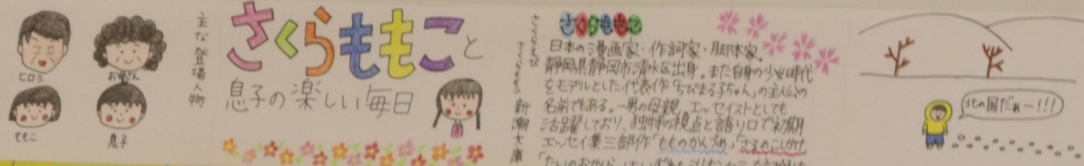 主な登場人物
お母さん
ももこ
息子
さくらももこと
息子の楽しい毎日
さくらももこ
新潮文庫
さくらももこ
日本の漫画家・作詞家・脚本家。
静岡県静岡市清水区出身。また自身の少女時代
をモデルとした代表作「ちびまる子ちゃん」の主人公の
名前である。一男の母親。エッセイストとしても
活躍しており、独特の視点と語り口で初期
エッセイ集三部作「もものかんづめ」「さるのこしかけ」
北の国だぁー!!!